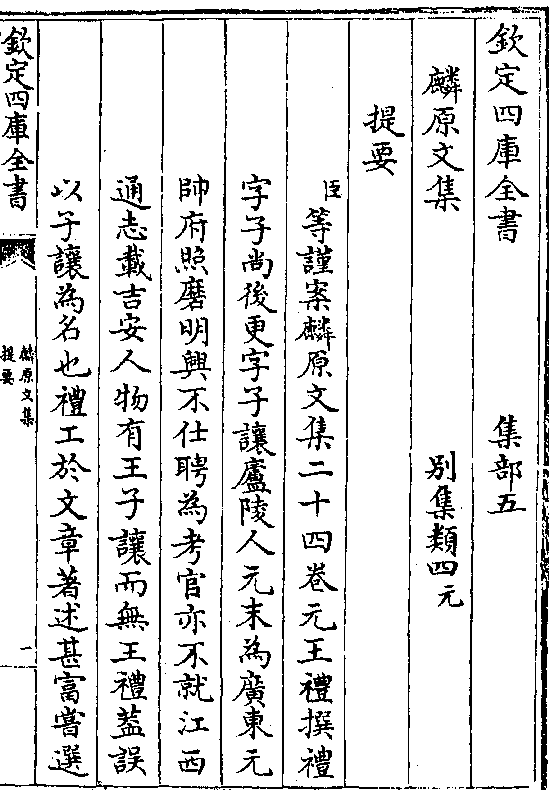 欽定四庫全書 集部五
麟原文集 別集類四元
提要
臣等謹案麟原文集二十四卷元王禮撰禮
字子尚後更字子讓廬陵人元末為廣東元
帥府照磨明興不仕聘為考官亦不就江西
通志載吉安人物有王子讓而無王禮蓋誤
以子讓為名也禮工於文章著述甚富嘗選
欽定四庫全書
麟原文集
提要
一